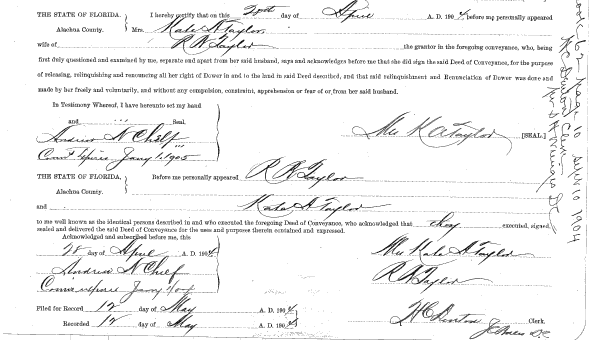 THE STATE OF FLORIDA.
Alachua County.
I hereby certify that on this day of April A. D. 1904, before me personally appeared
Mrs. Kate A Taylor
wife of R N Taylor the grantor in the foregoing conveyance, who, being
first duly questioned and examined by me, separate and apart from her said husband, says and acknowledges before me that she did sign the said Deed of Conveyance, for the purpose
of releasing, relinquishing and renouncing all her right of Dower in and to the land in said Deed described, and that said relinquishment and Renunciation of Dower was done and
made by her freely and voluntarily, and without any compulsion, constraint, apprehension or fear of or from her said husband.
In Testimony Whereof, I have hereunto set my hand
and Seal,
Andrew N Chelf
Com expires Jany 1, 1905
Mrs K A Taylor [SEAL]
THE STATE OF FLORIDA,
Alachua County.
Before me personally appeared R N Taylor
and Kate A Taylor
to me well known as the identical persons described in and who executed the foregoing Deed of Conveyance, who acknowledged that they executed, signed,
sealed and delivered the said Deed of Conveyance for the uses and purposes therein contained and expressed.
Acknowledged and subscribed before me, this
28 day of April A. D. 1904
Andrew N Chelf
Mrs Kate A Taylor
R N Taylor
Filed for Record 12 day of May A. D. 1904
Recorded 12 day of May A. D. 1904
H C Denton Clerk.
Book 62 page 10 1904
H C Denton Clerk